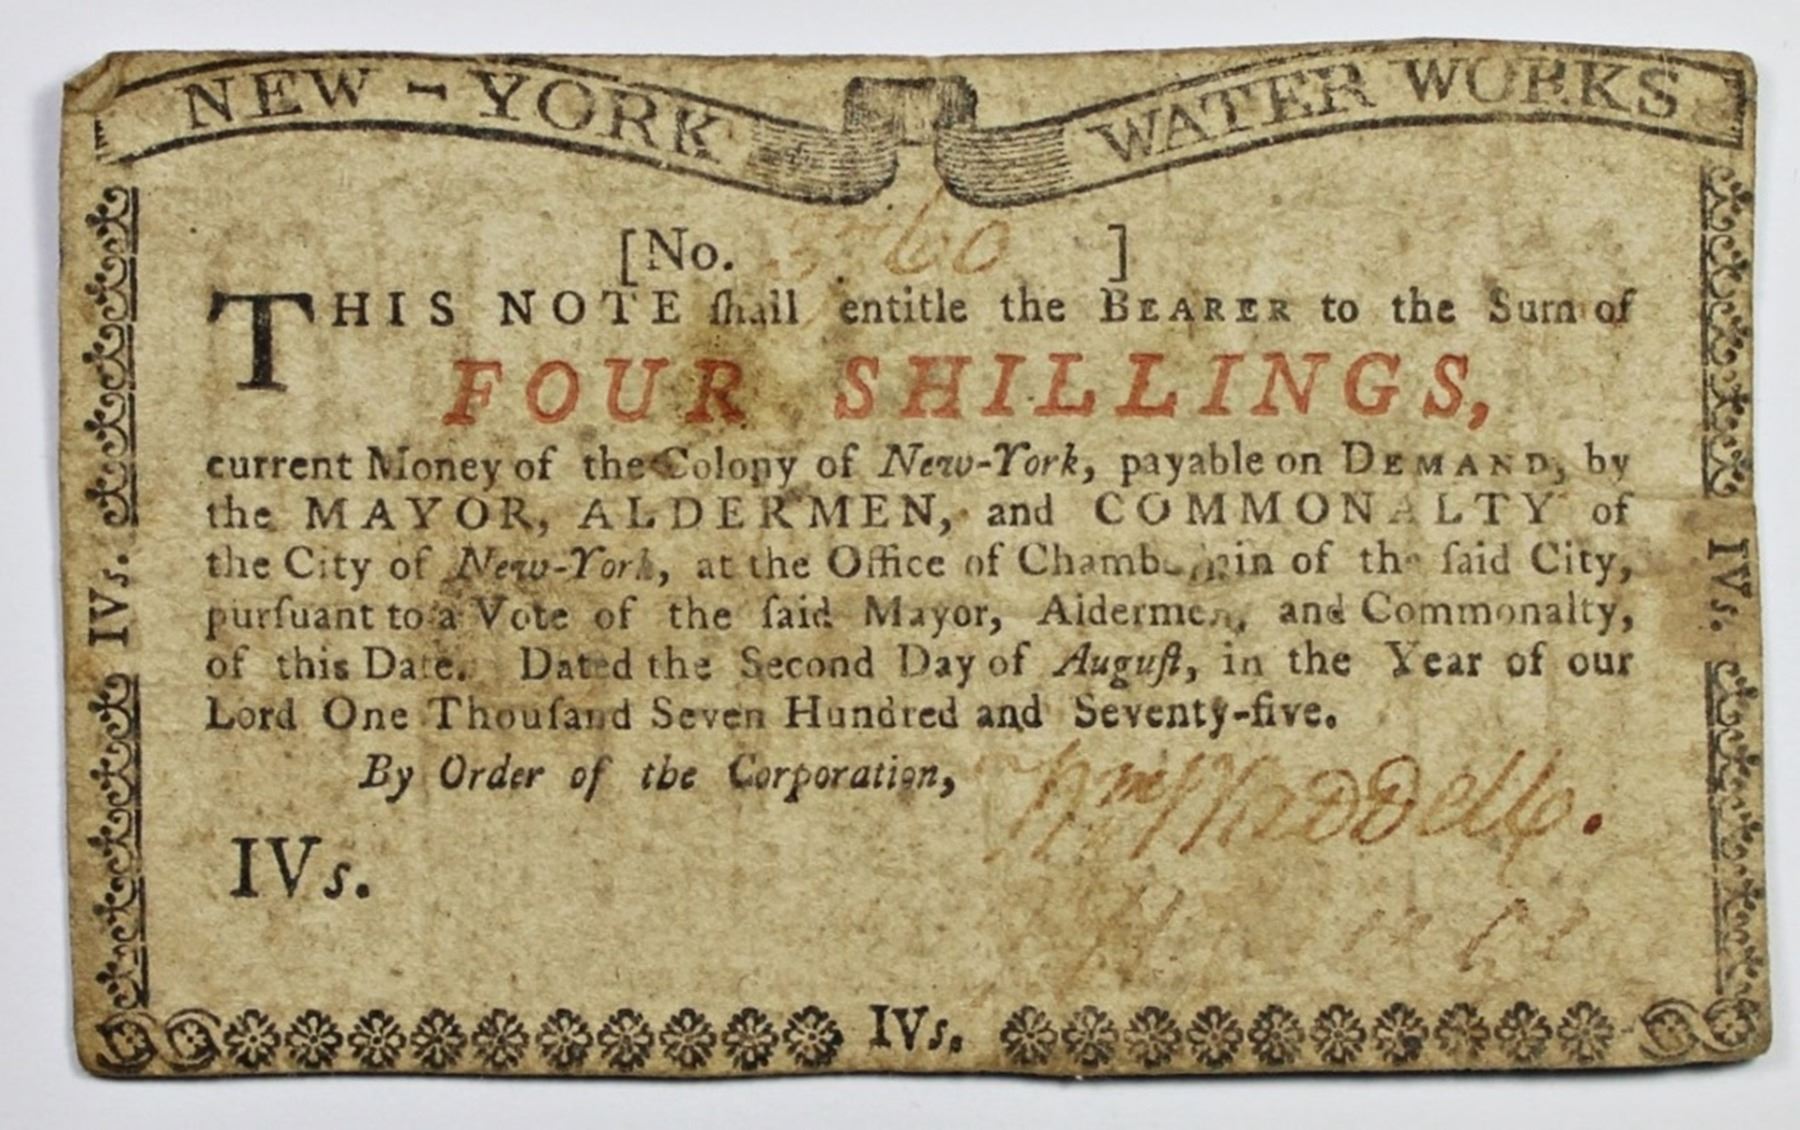 NEW-YORK WATER WORKS
[No. 60 ]
THIS NOTE ſhall entitle the BEARER to the Sum of
FOUR SHILLINGS,
current Money of the Colony of New-York, payable on DEMAND, by
the MAYOR, ALDERMEN, and COMMONALTY of
the City of New-York, at the Office of Chamberlain of the ſaid City,
purſuant to a Vote of the ſaid Mayor, Aldermen, and Commonalty,
of this Date. Dated the Second Day of Auguſt, in the Year of our
Lord One Thouſand Seven Hundred and Seventy-five.
By Order of the Corporation,
Wm Waddell.
IVs.
IVs.
IVs.
IVs.